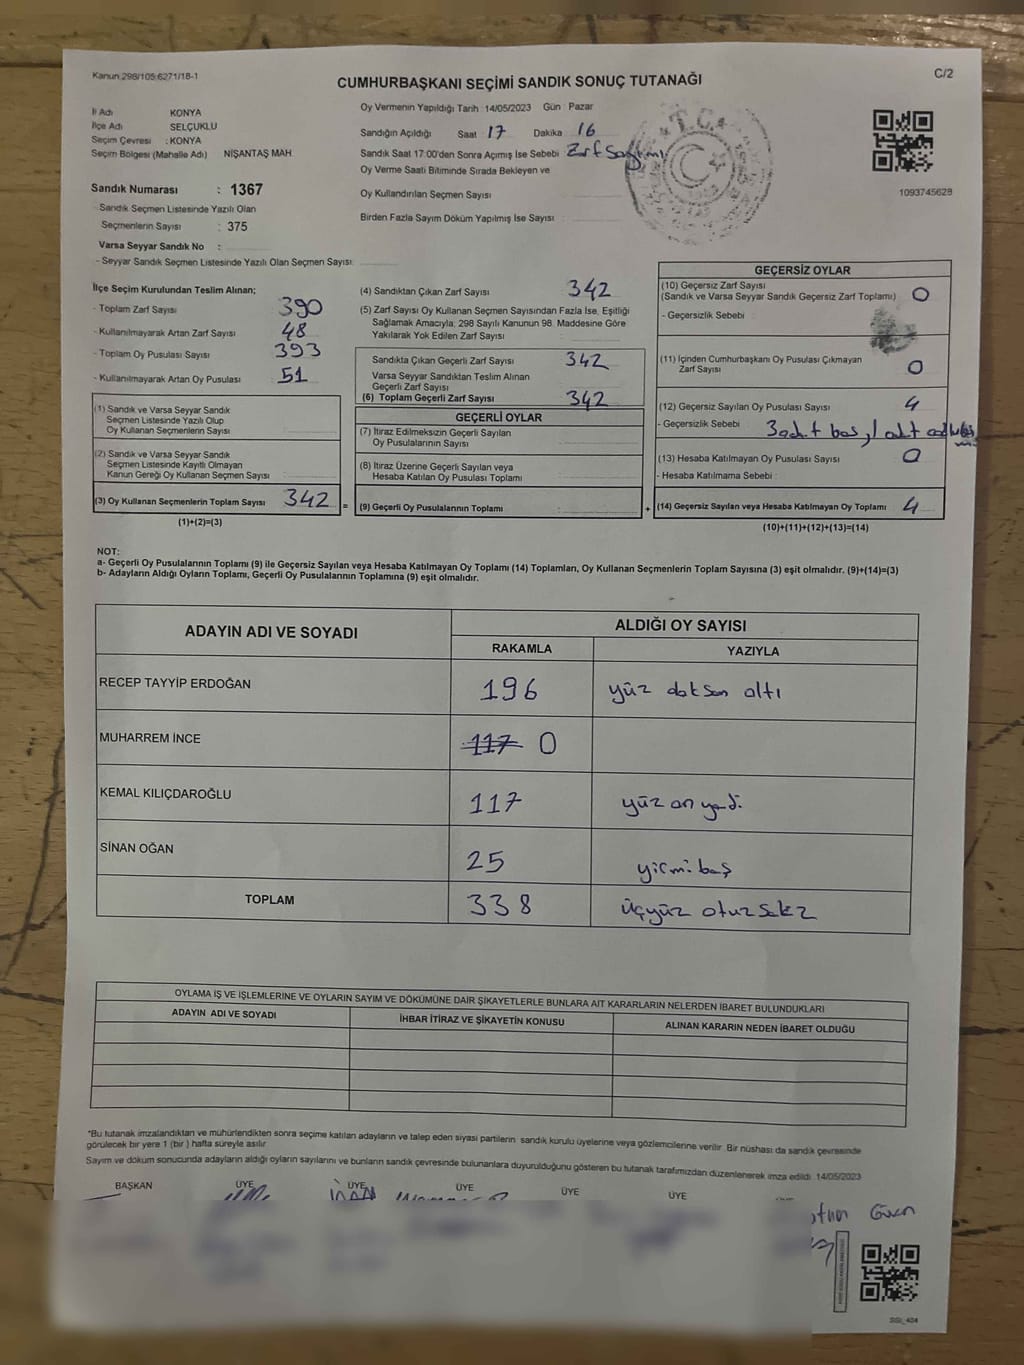 Kanun:298/105:6271/18-1
C/2
CUMHURBAŞKANI SEÇİMİ SANDIK SONUÇ TUTANAĞI
İl Adı KONYA
İlçe Adı SELÇUKLU
Seçim Çevresi : KONYA
Seçim Bölgesi (Mahalle Adı) NİŞANTAŞ MAH.
Sandık Numarası : 1367
Sandık Seçmen Listesinde Yazılı Olan
Seçmenlerin Sayısı : 375
Varsa Seyyar Sandık No :
- Seyyar Sandık Seçmen Listesinde Yazılı Olan Seçmen Sayısı:
Oy Vermenin Yapıldığı Tarih 14/05/2023 Gün Pazar
Sandığın Açıldığı Saat 17 Dakika 16
Sandık Saat 17:00'den Sonra Açımış İse Sebebi Zarf Sayımı
Oy Verme Saati Bitiminde Sırada Bekleyen ve
Oy Kullandırılan Seçmen Sayısı
Birden Fazla Sayım Döküm Yapılmış İse Sayısı
T.C.
1093745628
İlçe Seçim Kurulundan Teslim Alınan;
- Toplam Zarf Sayısı 390
- Kullanılmayarak Artan Zarf Sayısı 48
- Toplam Oy Pusulası Sayısı 393
- Kullanılmayarak Artan Oy Pusulası 51
(1) Sandık ve Varsa Seyyar Sandık
Seçmen Listesinde Yazılı Olup
Oy Kullanan Seçmenlerin Sayısı
(2) Sandık ve Varsa Seyyar Sandık
Seçmen Listesinde Kayıtlı Olmayan
Kanun Gereği Oy Kullanan Seçmen Sayısı
(3) Oy Kullanan Seçmenlerin Toplam Sayısı 342
(1)+(2)=(3)
(4) Sandıktan Çıkan Zarf Sayısı 342
(5) Zarf Sayısı Oy Kullanan Seçmen Sayısından Fazla İse, Eşitliği
Sağlamak Amacıyla; 298 Sayılı Kanunun 98. Maddesine Göre
Yakılarak Yok Edilen Zarf Sayısı
Sandıkta Çıkan Geçerli Zarf Sayısı 342
Varsa Seyyar Sandıktan Teslim Alınan
Geçerli Zarf Sayısı
(6) Toplam Geçerli Zarf Sayısı 342
GEÇERLİ OYLAR
(7) İtiraz Edilmeksizin Geçerli Sayılan
Oy Pusulalarının Sayısı
(8) İtiraz Üzerine Geçerli Sayılan veya
Hesaba Katılan Oy Pusulası Toplamı
= (9) Geçerli Oy Pusulalarının Toplamı
GEÇERSİZ OYLAR
(10) Geçersiz Zarf Sayısı
(Sandık ve Varsa Seyyar Sandık Geçersiz Zarf Toplamı) 0
- Geçersizlik Sebebi
(11) İçinden Cumhurbaşkanı Oy Pusulası Çıkmayan
Zarf Sayısı 0
(12) Geçersiz Sayılan Oy Pusulası Sayısı 4
- Geçersizlik Sebebi 3 adet boş
(13) Hesaba Katılmayan Oy Pusulası Sayısı 0
- Hesaba Katılmama Sebebi :
+ (14) Geçersiz Sayılan veya Hesaba Katılmayan Oy Toplamı 4
(10)+(11)+(12)+(13)=(14)
NOT:
a- Geçerli Oy Pusulalarının Toplamı (9) ile Geçersiz Sayılan veya Hesaba Katılmayan Oy Toplamı (14) Toplamları, Oy Kullanan Seçmenlerin Toplam Sayısına (3) eşit olmalıdır. (9)+(14)=(3)
b- Adayların Aldığı Oyların Toplamı, Geçerli Oy Pusulalarının Toplamına (9) eşit olmalıdır.
ADAYIN ADI VE SOYADI ALDIĞI OY SAYISI
RAKAMLA YAZIYLA
RECEP TAYYİP ERDOĞAN 196 yüz doksan altı
MUHARREM İNCE 117 0
KEMAL KILIÇDAROĞLU 117 yüz on yedi
SİNAN OĞAN 25 yirmi beş
TOPLAM 338 üçyüz otuz sekiz
OYLAMA İŞ VE İŞLEMLERİNE VE OYLARIN SAYIM VE DÖKÜMÜNE DAİR ŞİKAYETLERLE BUNLARA AİT KARARLARIN NELERDEN İBARET BULUNDUKLARI
ADAYIN ADI VE SOYADI İHBAR İTİRAZ VE ŞİKAYETİN KONUSU ALINAN KARARIN NEDEN İBARET OLDUĞU
*Bu tutanak imzalandıktan ve mühürlendikten sonra seçime katılan adayların ve talep eden siyasi partilerin sandık kurulu üyelerine veya gözlemcilerine verilir. Bir nüshası da sandık çevresinde
görülecek bir yere 1 (bir) hafta süreyle asılır.
Sayım ve döküm sonucunda adayların aldığı oyların sayılarını ve bunların sandık çevresinde bulunanlara duyurulduğunu gösteren bu tutanak tarafımızdan düzenlenerek imza edildi. 14/05/2023
BAŞKAN ÜYE ÜYE ÜYE ÜYE ÜYE